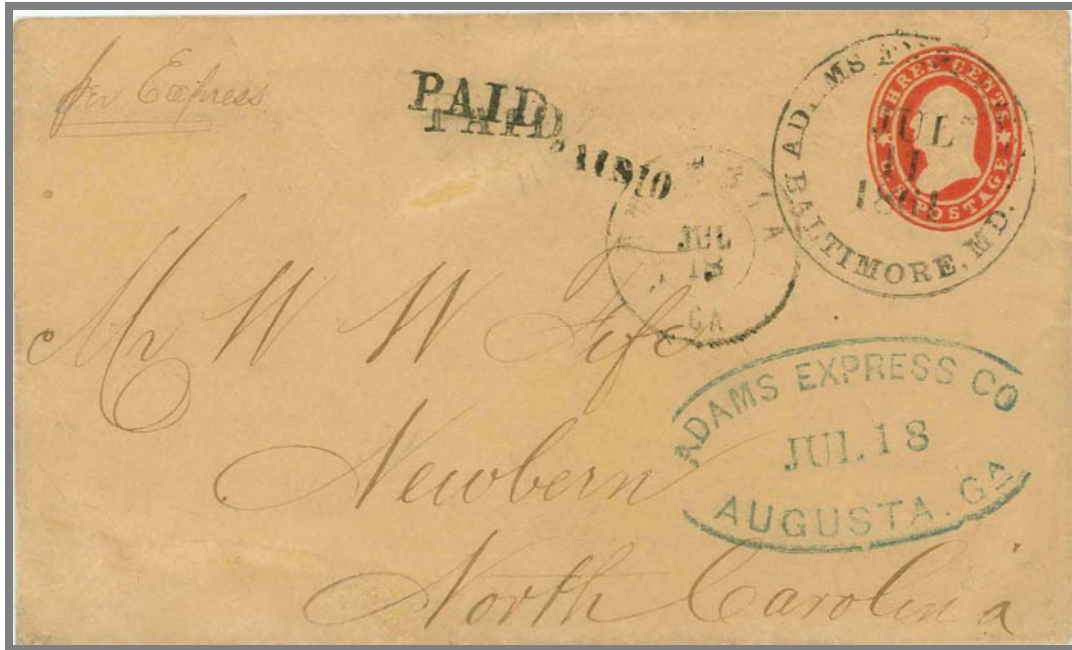 per Express
PAID
PAID
ADAMS
JUL
11
BALTIMORE, MD.
THREE CENTS
U.S. POSTAGE
10
JUL
18
GA
Mr W W Fife
Newbern
North Carolina
ADAMS EXPRESS CO
JUL 18
AUGUSTA. GA